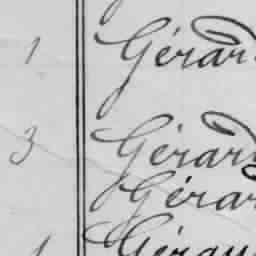 1 Gérard
3 Gérard
Gérar
1 Gérau